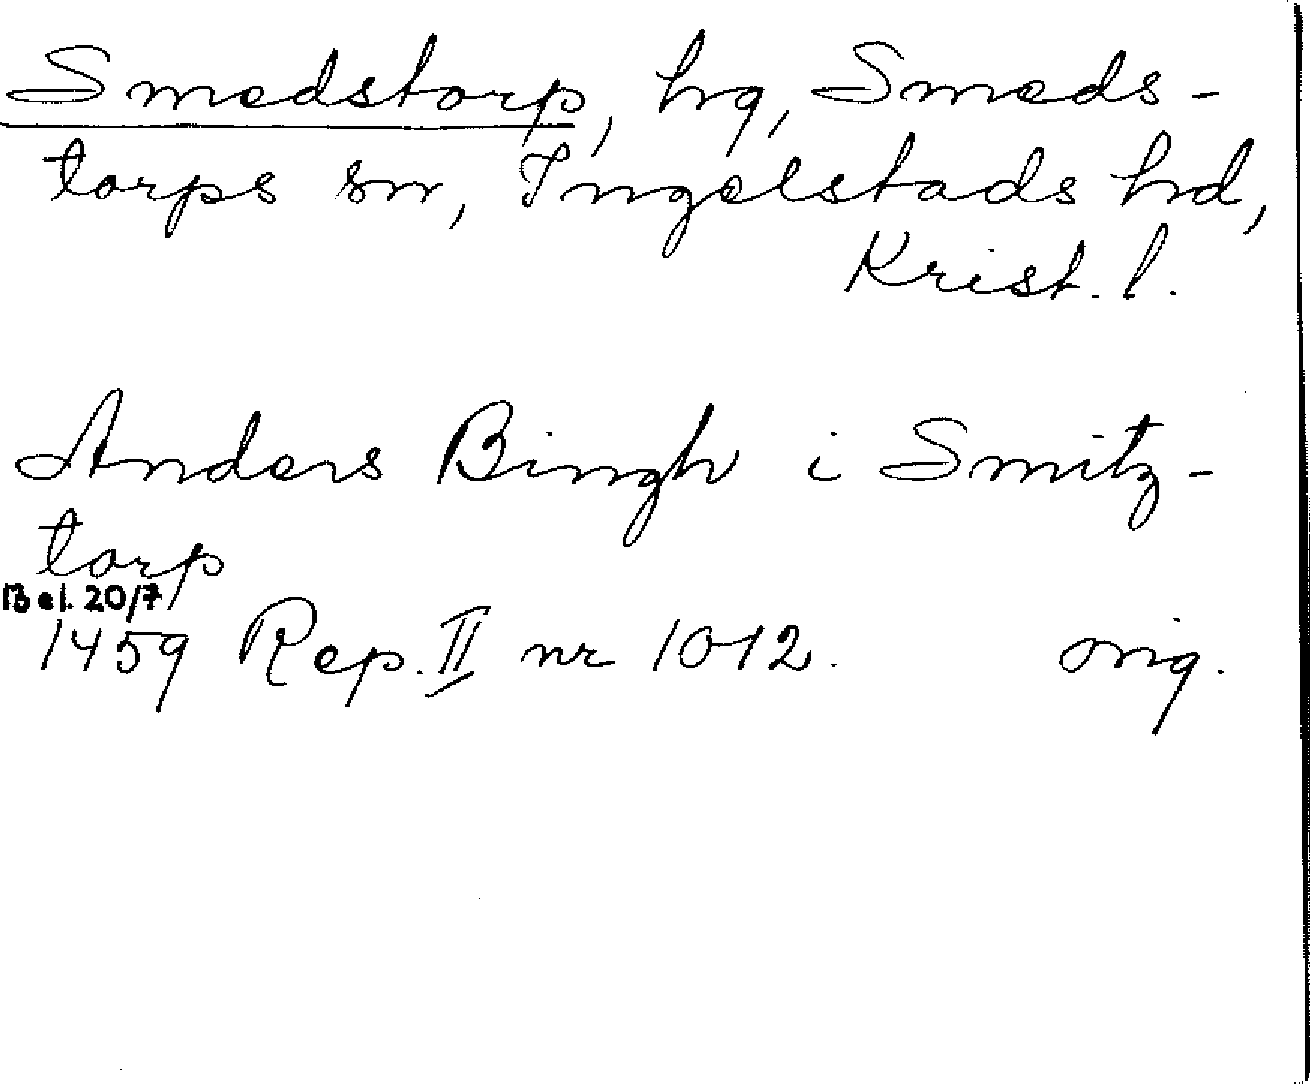 Smedstorp, hg, Smeds-
torps sn, Ingelstads hd,
Krist. l.
Anders Bingh i Smitz-
torp
Bel. 20/7
1459 Rep. II nr 1012. orig.